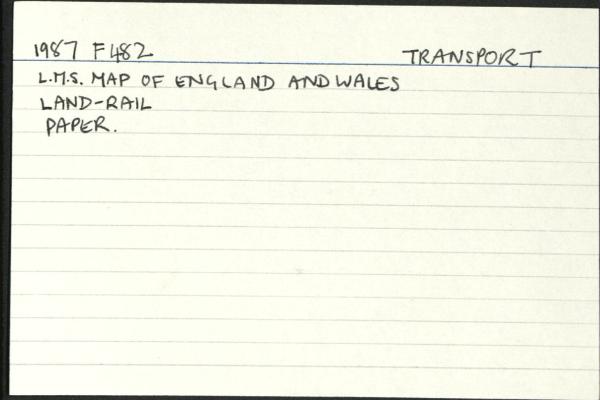 1987 F482 TRANSPORT
L.M.S. MAP OF ENGLAND AND WALES
LAND-RAIL
PAPER.